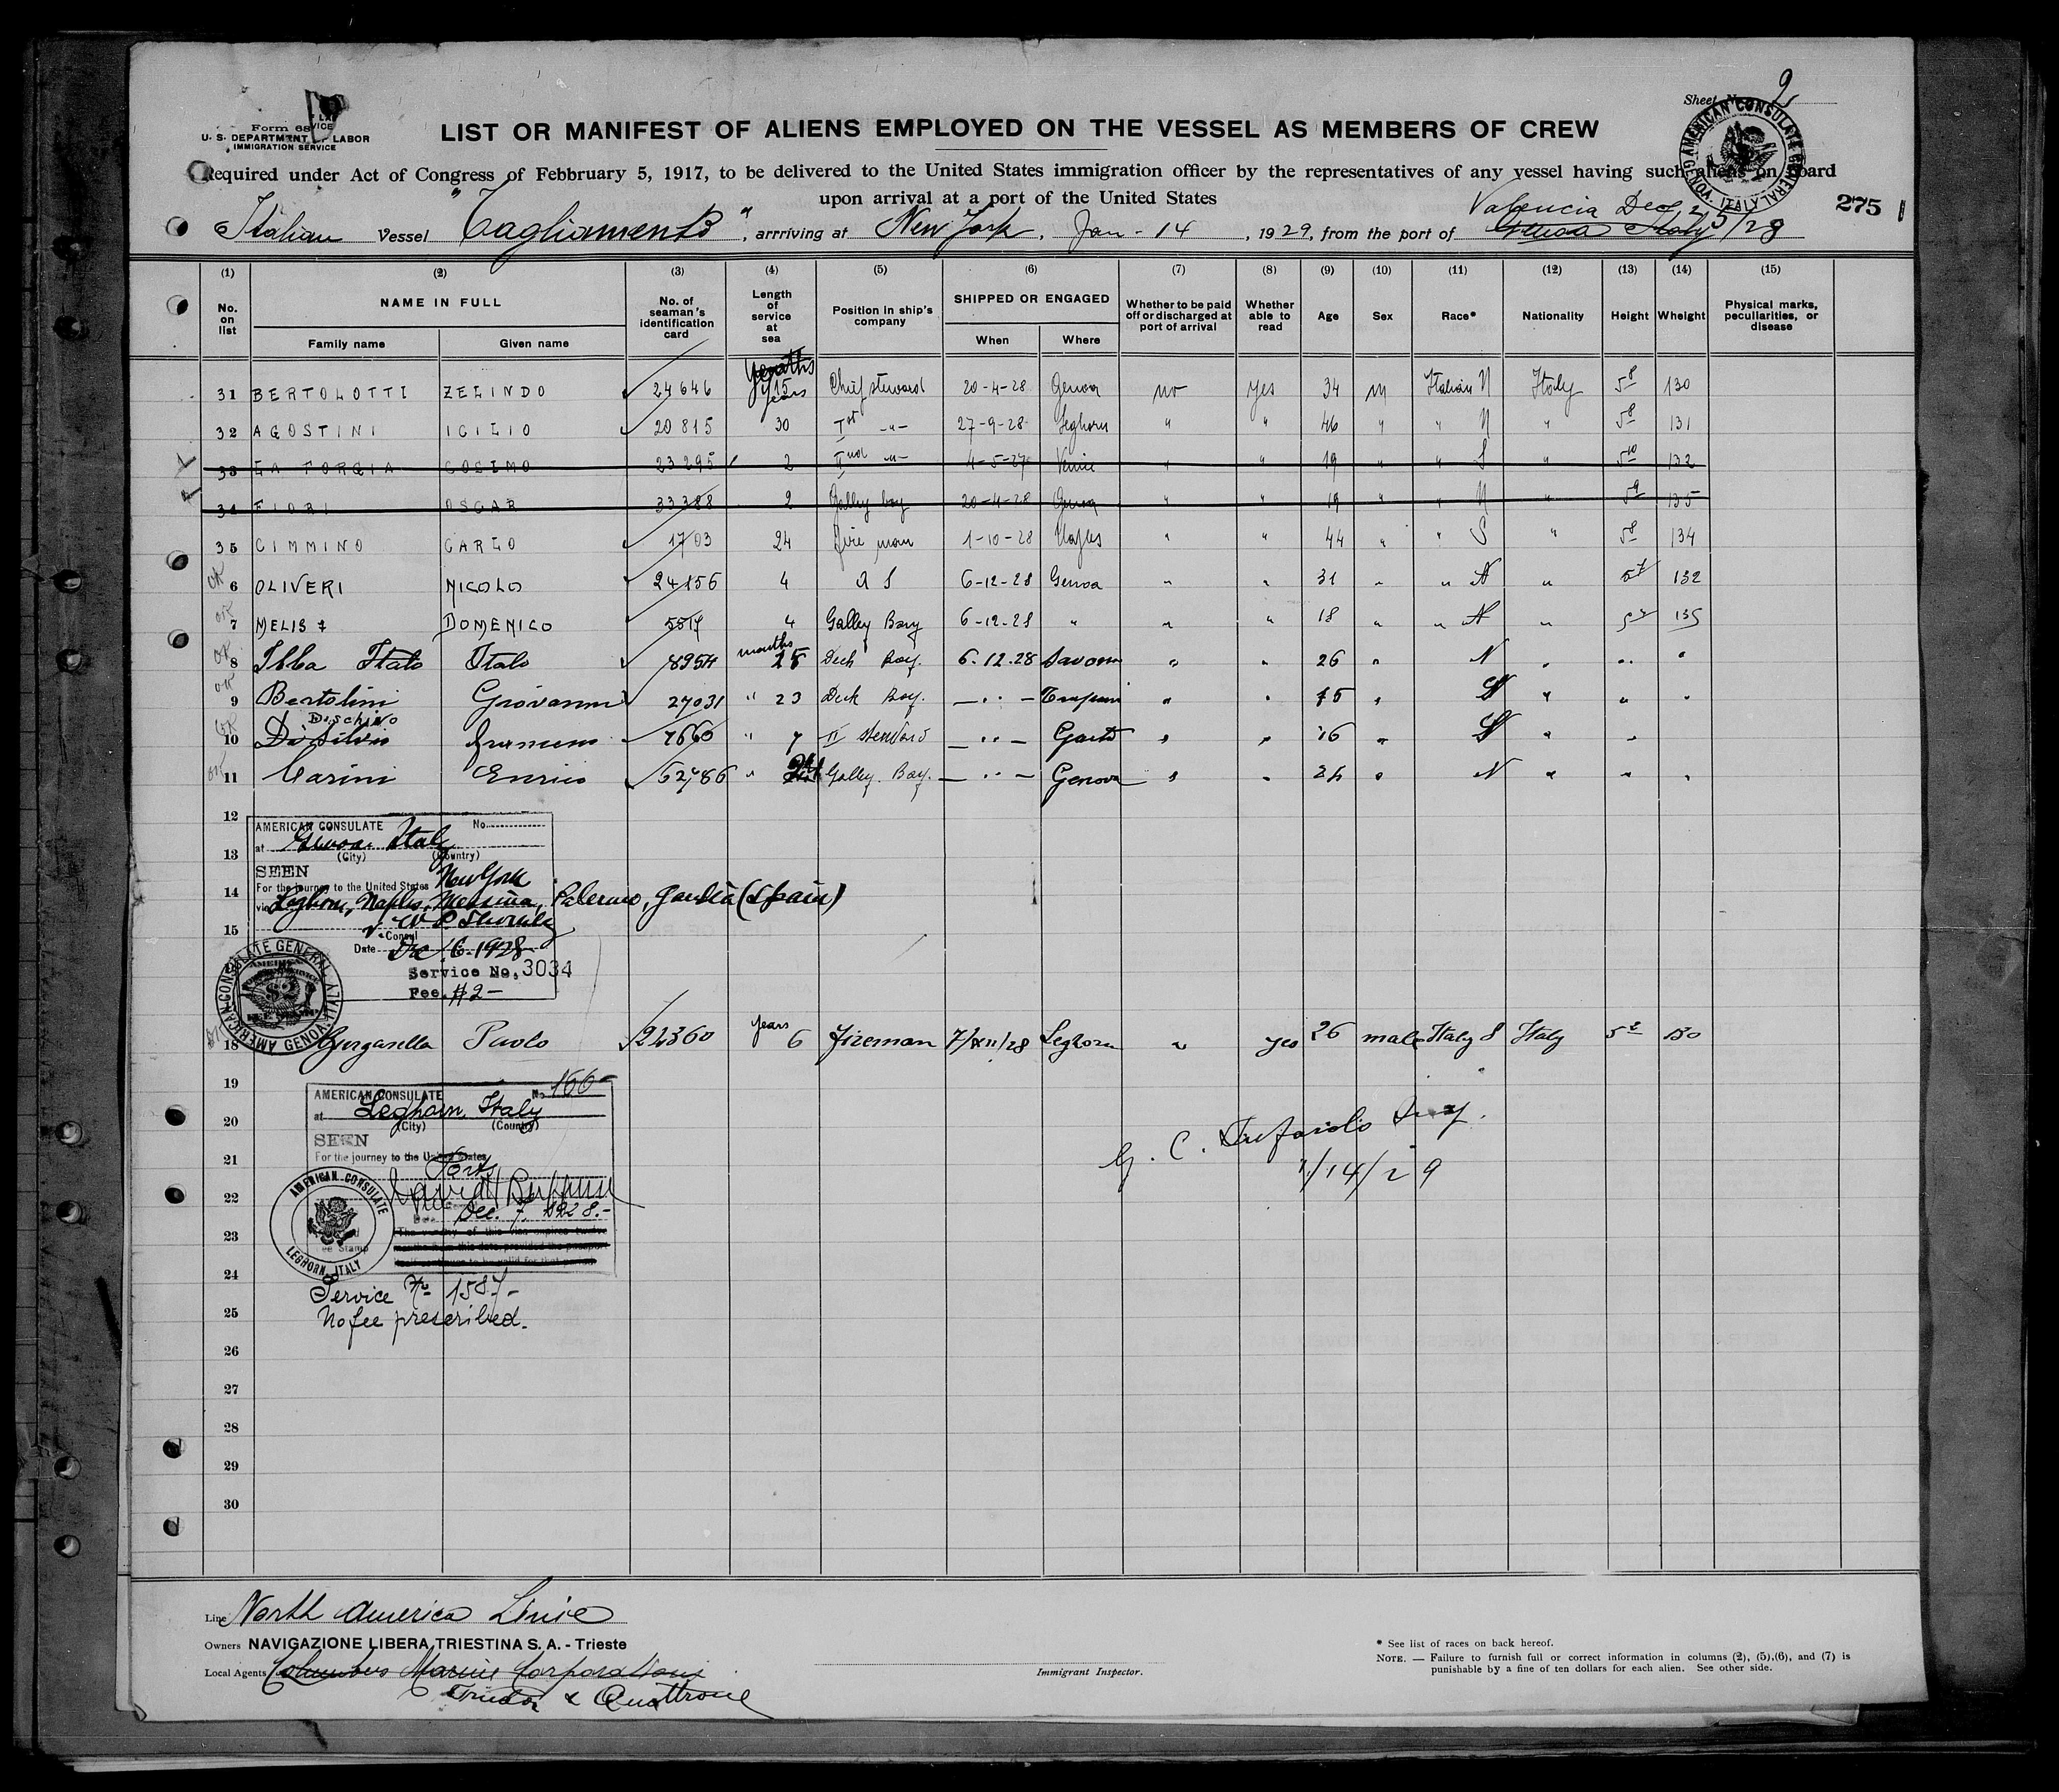 Sheet No. 2
Form 68
U. S. DEPARTMENT OF LABOR
IMMIGRATION SERVICE
LIST OR MANIFEST OF ALIENS EMPLOYED ON THE VESSEL AS MEMBERS OF CREW
AMERICAN CONSULATE GENERAL GENOVA ITALY
Required under Act of Congress of Febbruary 5, 1917, to be delivered to the United States immigration officer by the representatives of any vessel having such aliens on board
upon arrival at a port of the United States
275
Valencia Dec 25/28
Italian Vessel "Tagliamento", arrriving at New York, Jan - 14, 1929, from the port of Genoa Italy
(1) (2) (3) (4) (5) (6) (7) (8) (9) (10) (11) (12) (13) (14) (15)
No. on list NAME IN FULL Family name Given name No. of seaman's identification card Length of service at sea Position in ship's company SHIPPED OR ENGAGED When Where Whether to be paid off or discharged at port of arrival Whether able to read Age Sex Race* Nationality Height Wheight Physical marks, peculiarities, or disease
31 BERTOLOTTI ZELINDO 24646 15 years Chief steward 20-4-28 Genoa no yes 34 m Italian N Italy 5 8 130
32 AGOSTINI IGILIO 20815 30 Ist -"- 27-9-28 Leghorn " " 46 " " N " 5 8 131
33 LA TORGIA COSIMO 23295 2 IInd -"- 4-5-27 Venice " " 19 " " S " 5 10 132
34 FIORI OSCAR 33388 2 Galley boy 20-4-28 Genoa " " 19 " " N " 5 9 135
35 CIMMINO CARLO 1703 24 Fire man 1-10-28 Naples " " 44 " " S " 5 8 134
OK 6 OLIVERI NICOLO 24156 4 A S 6-12-28 Genoa " " 31 " " N " 5 7 132
OK 7 MELIS DOMENICO 5517 4 Galley Bay 6-12-28 " " " 18 " " N " 135
OK 8 Ibba Italo Italo 8954 months 18 Deck Boy. 6.12.28 Savona " " 26 " N " " "
OK 9 Bertolini Giovanni 27031 " 23 Deck Boy. — " — Trapani " " 15 " " " "
Dischino
OK 10 7660 " 7 II Steward — " — Gaeta " " 16 " " "
OK 11 Carini Enrico 52786 " Galley. Bay. — " — Genova " " 24 " N " " "
12
AMERICAN CONSULATE No.
at Genoa Italy
13 (City) (Country)
SEEN
For the journey to the United States New York
14 via Leghorn, Naples, Messina, Palermo, (Spain)
15
Consul
Date Dec 6-1928
Service No. 3034
Fee. $2-
AMERICAN CONSULATE GENERAL GENOVA ITALY
OK 18 Gorgasella Paolo 24360 years 6 fireman 7/XII/28 Leghorn " yes 26 male Italy S Italy 5 2 130
19
AMERICAN CONSULATE No 166-
at Leghorn, Italy
20 (City) (Country)
SEEN
21 For the journey to the United States
22 Dec. 7, 1928.-
23
AMERICAN CONSULATE LEGHORN, ITALY
Fee Stamp
24
Service No 1587-
25 No fee prescribed.
1/14/29
26
27
28
29
30
Line North America Linie
Owners NAVIGAZIONE LIBERA TRIESTINA S. A. - Trieste
Local Agents Columbus Marine Corporations
& Quattrone
Immigrant Inspector.
* See list of races on back hereof.
NOTE. — Failure to furnish full or correct information in columns (2), (5),(6), and (7) is
punishable by a fine of ten dollars for each alien. See other side.